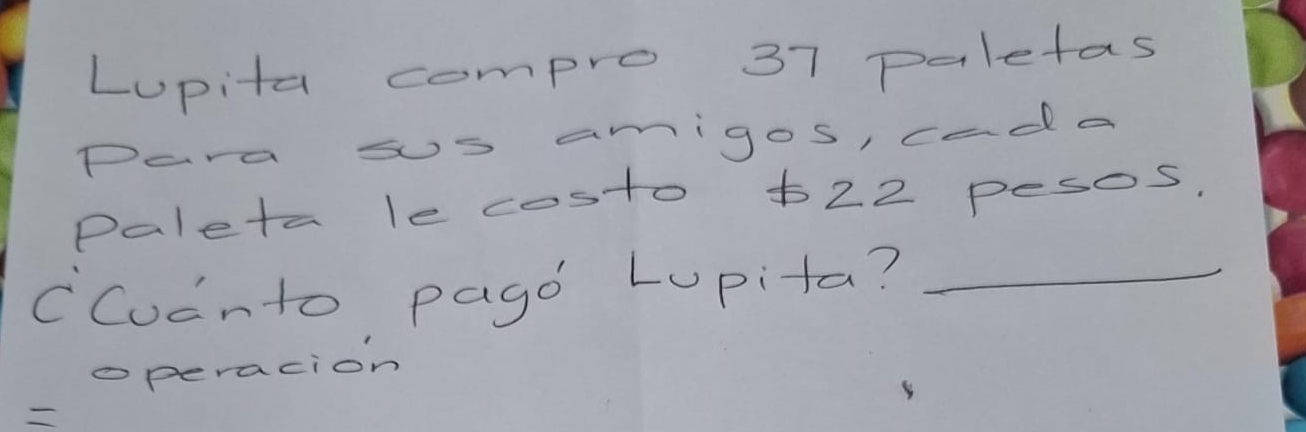 Lupita compro 37 paletas
para sus amigos, cada
paleta le costo $22 pesos.
¿Cuánto pagó Lupita? ________
operación
=